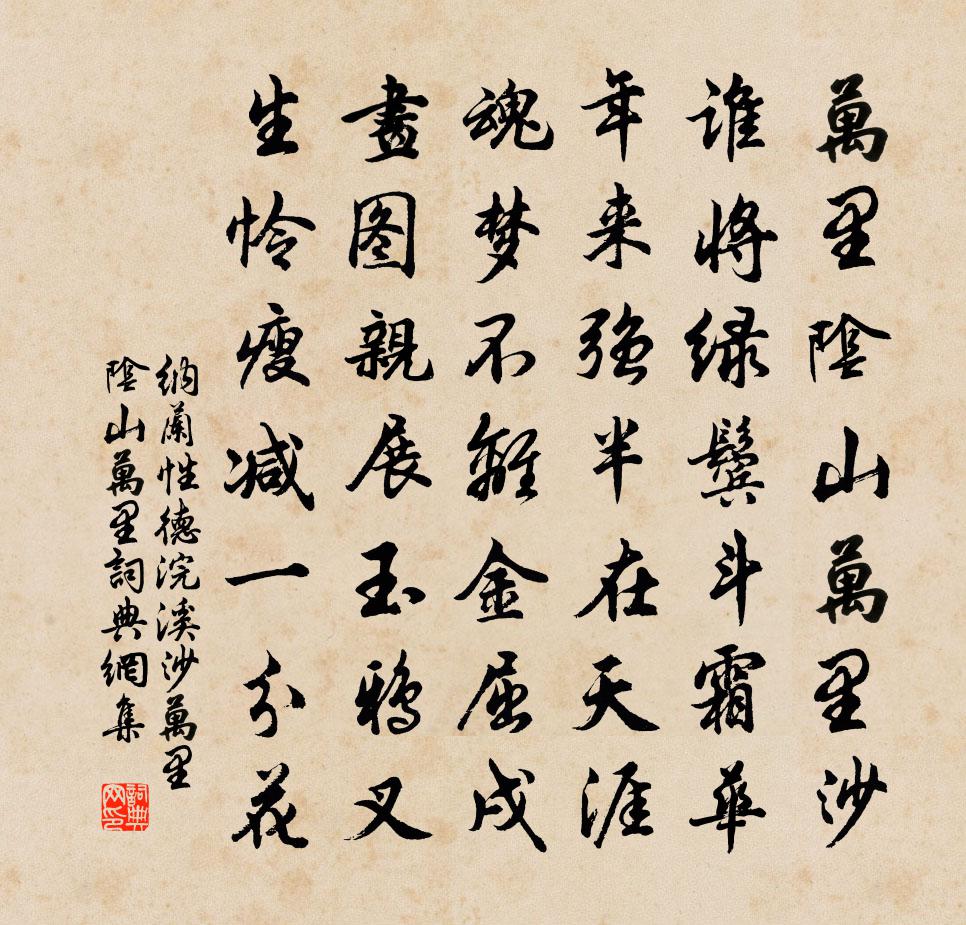 萬里陰山萬里沙
谁將绿鬓斗霜華
年来强半在天涯
魂梦不離金屈戌
畫图親展玉鴉叉
生怜瘦减一分花
納蘭性德浣溪沙萬里
陰山萬里詞典網集
詞典
网印